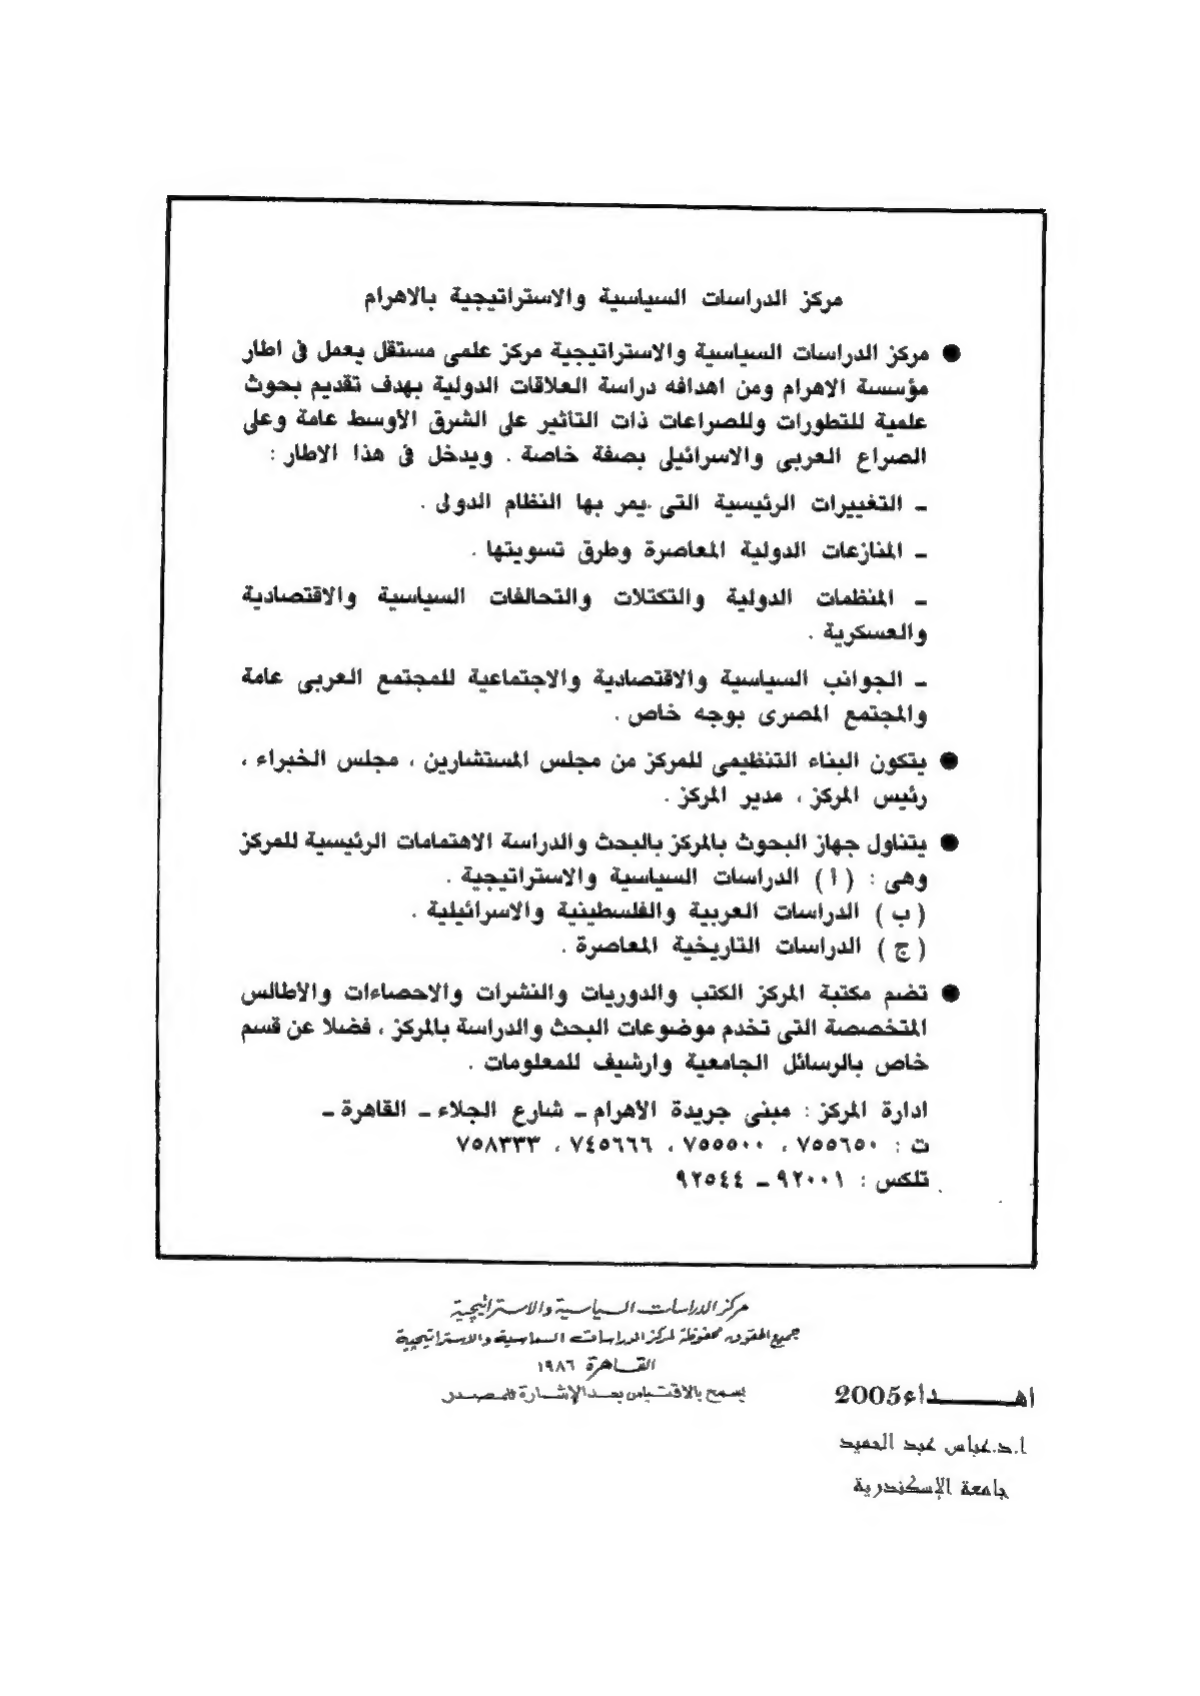 مركز الدراسات السياسية والاستراتيجية بالاهرام
● مركز الدراسات السياسية والاستراتيجية مركز علمى مستقل يعمل فى اطار
مؤسسة الاهرام ومن اهدافه دراسة العلاقات الدولية بهدف تقديم بحوث
علمية للتطورات وللصراعات ذات التأثير على الشرق الأوسط عامة وعلى
الصراع العربى والاسرائيلى بصفة خاصة . ويدخل فى هذا الاطار :
ـ التغييرات الرئيسية التى يمر بها النظام الدولى .
ـ المنازعات الدولية المعاصرة وطرق تسويتها .
ـ المنظمات الدولية والتكتلات والتحالفات السياسية والاقتصادية
والعسكرية .
ـ الجوانب السياسية والاقتصادية والاجتماعية للمجتمع العربى عامة
والمجتمع المصرى بوجه خاص .
● يتكون البناء التنظيمى للمركز من مجلس المستشارين ، مجلس الخبراء ،
رئيس المركز ، مدير المركز .
● يتناول جهاز البحوث بالمركز بالبحث والدراسة الاهتمامات الرئيسية للمركز
وهى : ( أ ) الدراسات السياسية والاستراتيجية .
( ب ) الدراسات العربية والفلسطينية والاسرائيلية .
( ج ) الدراسات التاريخية المعاصرة .
● تضم مكتبة المركز الكتب والدوريات والنشرات والاحصاءات والأطالس
المتخصصة التى تخدم موضوعات البحث والدراسة بالمركز ، فضلا عن قسم
خاص بالرسائل الجامعية وارشيف للمعلومات .
ادارة المركز : مبنى جريدة الأهرام ـ شارع الجلاء ـ القاهرة ـ
ت : ٧٥٥٦٥٠ ، ٧٥٥٥٠٠ ، ٧٤٥٦٦٦ ، ٧٥٨٣٣٣
تلكس : ٩٢٠٠١ ـ ٩٢٥٤٤
مركز الدراسات السياسية والاستراتيچية
جميع الحقوق محفوظة لمركز الدراسات السياسية والاستراتيچية
القاهرة ١٩٨٦
يسمح بالاقتباس بعد الإشارة للمصدر
اهـــــــداء 2005
ا.د.عباس عبد الحميد
جامعة الإسكندرية